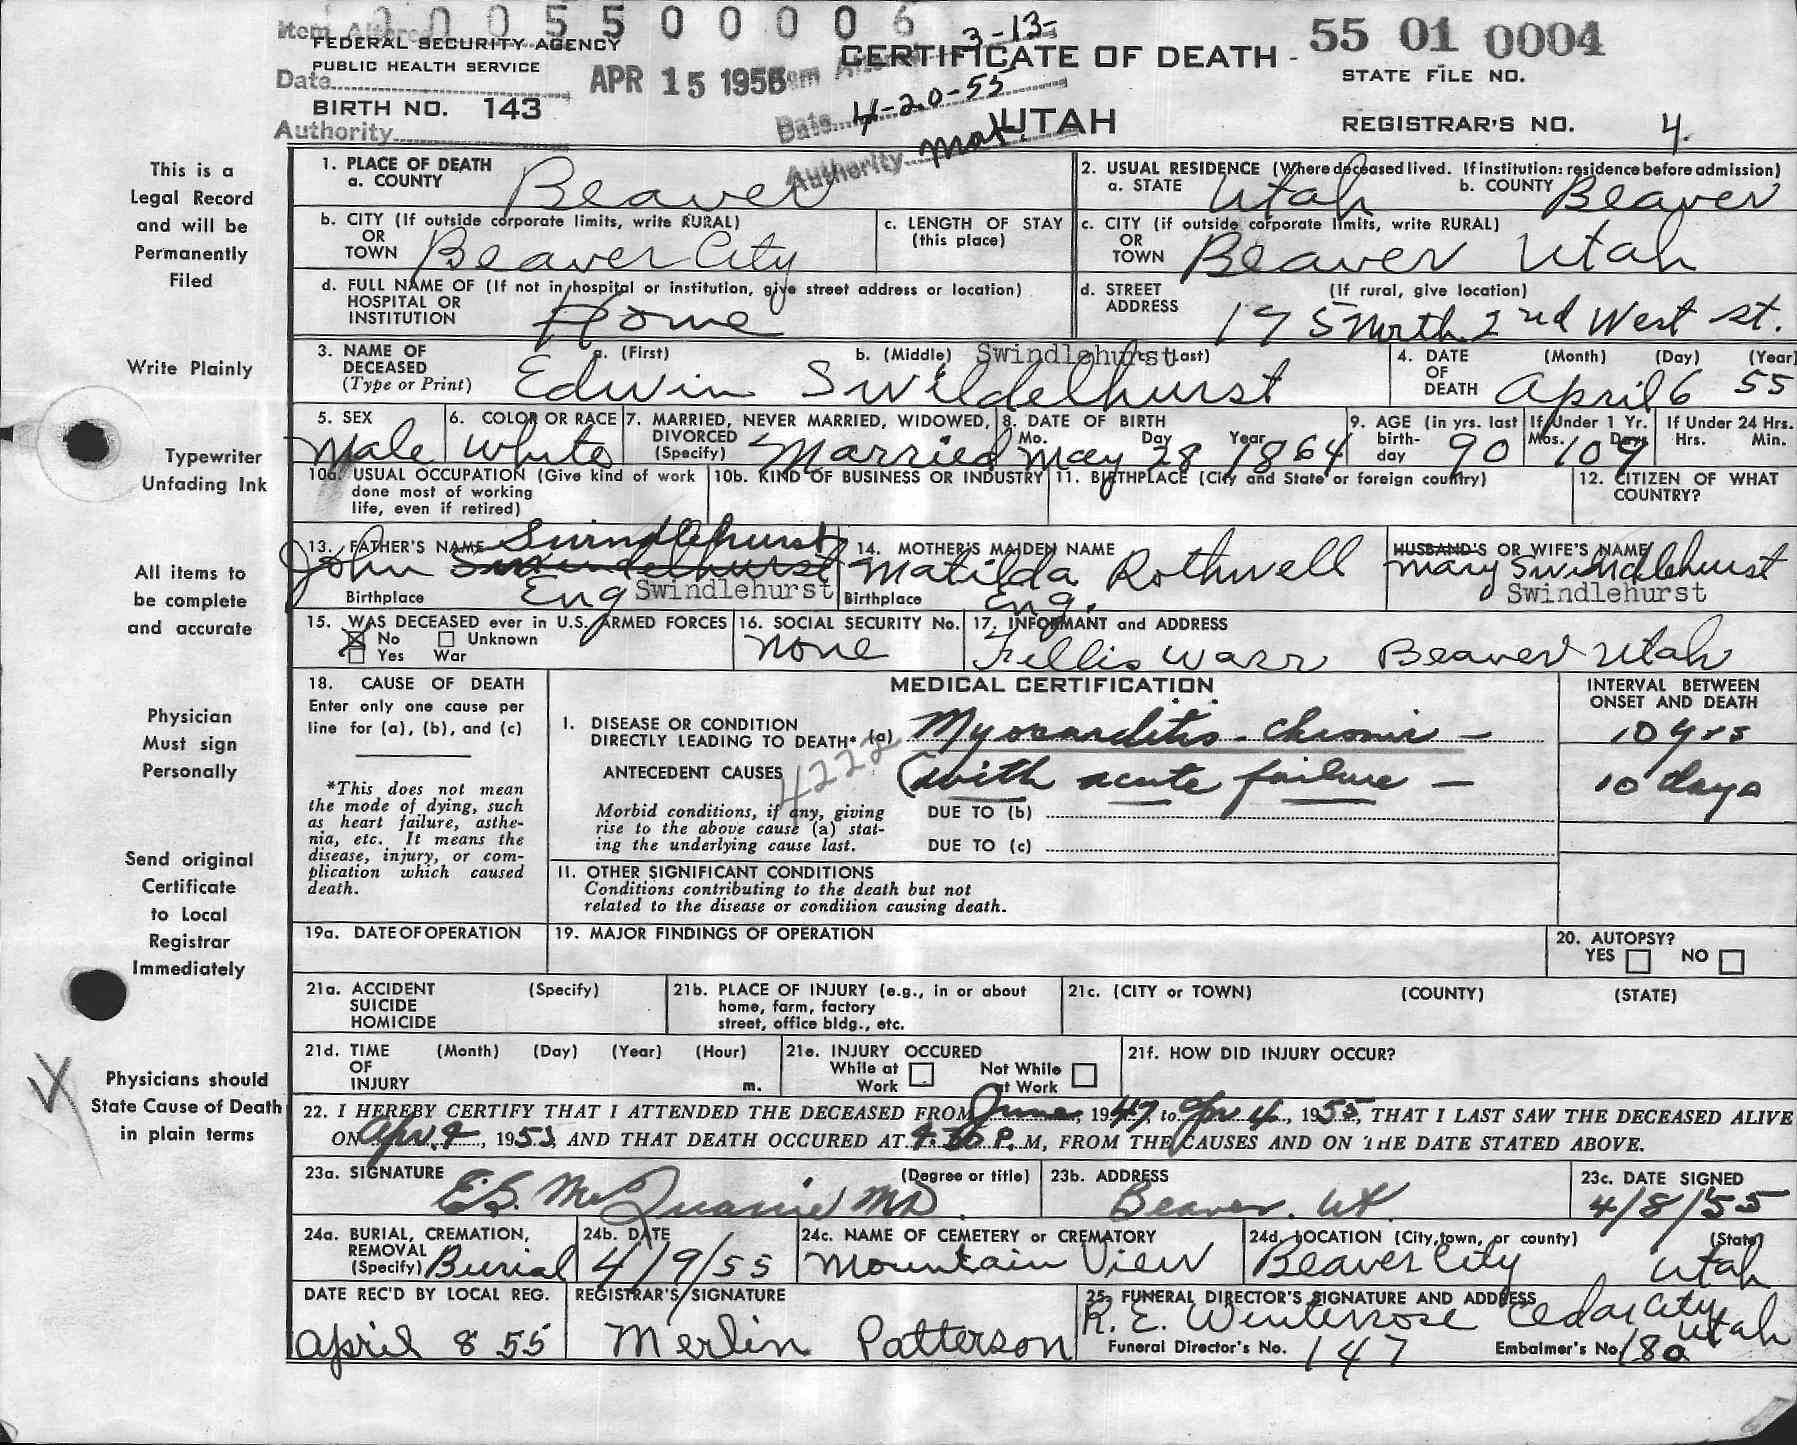 Item Altered 0 0 5 5 0 0 0 0 6
FEDERAL SECURITY AGENCY
PUBLIC HEALTH SERVICE
Date APR 15 1955
BIRTH NO. 143
Authority
3-13-
CERTIFICATE OF DEATH -
Date 4-20-55
UTAH
Authority
55 01 0004
STATE FILE NO.
REGISTRAR'S NO. 4.
This is a
Legal Record
and will be
Permanently
Filed
Write Plainly
Typewriter
Unfading Ink
All items to
be complete
and accurate
Physician
Must sign
Personally
Send original
Certificate
to Local
Registrar
Immediately
Physicians should
State Cause of Death
in plain terms
1. PLACE OF DEATH
a. COUNTY Beaver
2. USUAL RESIDENCE (Where deceased lived. If institution: residence before admission)
a. STATE Utah b. COUNTY Beaver
b. CITY (If outside corporate limits, write RURAL)
OR
TOWN Beaver City
c. LENGTH OF STAY
(this place)
c. CITY (if outside corporate limits, write RURAL)
OR
TOWN Beaver Utah
d. FULL NAME OF (If not in hospital or institution, give street address or location)
HOSPITAL OR
INSTITUTION Home
d. STREET (If rural, give location)
ADDRESS 175 North 2nd West st.
3. NAME OF a. (First) b. (Middle) Swindlehurst c. (Last)
DECEASED
(Type or Print) Edwin Swildelhurst
4. DATE (Month) (Day) (Year)
OF
DEATH April 6 55
5. SEX
Male
6. COLOR OR RACE
White
7. MARRIED, NEVER MARRIED, WIDOWED,
DIVORCED
(Specify) Married
8. DATE OF BIRTH
Mo. Day Year
May 28 1864
9. AGE (in yrs. last
birth-
day 90
If Under 1 Yr.
Mos. Days
10 9
If Under 24 Hrs.
Hrs. Min.
10a. USUAL OCCUPATION (Give kind of work
done most of working
life, even if retired)
10b. KIND OF BUSINESS OR INDUSTRY
11. BIRTHPLACE (City and State or foreign country)
12. CITIZEN OF WHAT
COUNTRY?
13. FATHER'S NAME Swindlehurst
John
Birthplace Eng Swindlehurst
14. MOTHER'S MAIDEN NAME
Matilda Rothwell
Birthplace Eng.
HUSBAND'S OR WIFE'S NAME
Mary Swindlehurst
Swindlehurst
15. WAS DECEASED ever in U.S. ARMED FORCES
No Unknown
Yes War
16. SOCIAL SECURITY No.
None
17. INFORMANT and ADDRESS
Fellis Warr Beaver Utah
18. CAUSE OF DEATH
Enter only one cause per
line for (a), (b), and (c)
*This does not mean
the mode of dying, such
as heart failure, asthe-
nia, etc. It means the
disease, injury, or com-
plication which caused
death.
MEDICAL CERTIFICATION
INTERVAL BETWEEN
ONSET AND DEATH
I. DISEASE OR CONDITION
DIRECTLY LEADING TO DEATH* (a) Myocarditis - Chronic - 10 yrs
4222
ANTECEDENT CAUSES (with acute failure - 10 days
Morbid conditions, if any, giving
rise to the above cause (a) stat-
ing the underlying cause last.
DUE TO (b)
DUE TO (c)
II. OTHER SIGNIFICANT CONDITIONS
Conditions contributing to the death but not
related to the disease or condition causing death.
19a. DATE OF OPERATION
19. MAJOR FINDINGS OF OPERATION
20. AUTOPSY?
YES NO
21a. ACCIDENT (Specify)
SUICIDE
HOMICIDE
21b. PLACE OF INJURY (e.g., in or about
home, farm, factory
street, office bldg., etc.
21c. (CITY or TOWN) (COUNTY) (STATE)
21d. TIME (Month) (Day) (Year) (Hour)
OF
INJURY m.
21e. INJURY OCCURED
While at Not While
Work at Work
21f. HOW DID INJURY OCCUR?
22. I HEREBY CERTIFY THAT I ATTENDED THE DECEASED FROM June, 1947, to Apr 4, 1955, THAT I LAST SAW THE DECEASED ALIVE
ON Apr. 4, 1955, AND THAT DEATH OCCURED AT P. M, FROM THE CAUSES AND ON THE DATE STATED ABOVE.
23a. SIGNATURE (Degree or title)
E.S. McQuarrie MD.
23b. ADDRESS
Beaver. Ut.
23c. DATE SIGNED
4/8/55
24a. BURIAL, CREMATION,
REMOVAL
(Specify) Burial
24b. DATE
4/9/55
24c. NAME OF CEMETERY or CREMATORY
Mountain View
24d. LOCATION (City, town, or county) (State)
Beaver City Utah
DATE REC'D BY LOCAL REG.
April 8 55
REGISTRAR'S SIGNATURE
Merlin Patterson
25. FUNERAL DIRECTOR'S SIGNATURE AND ADDRESS
R. E. Winterrose Cedar City Utah
Funeral Director's No. 147 Embalmer's No. 180